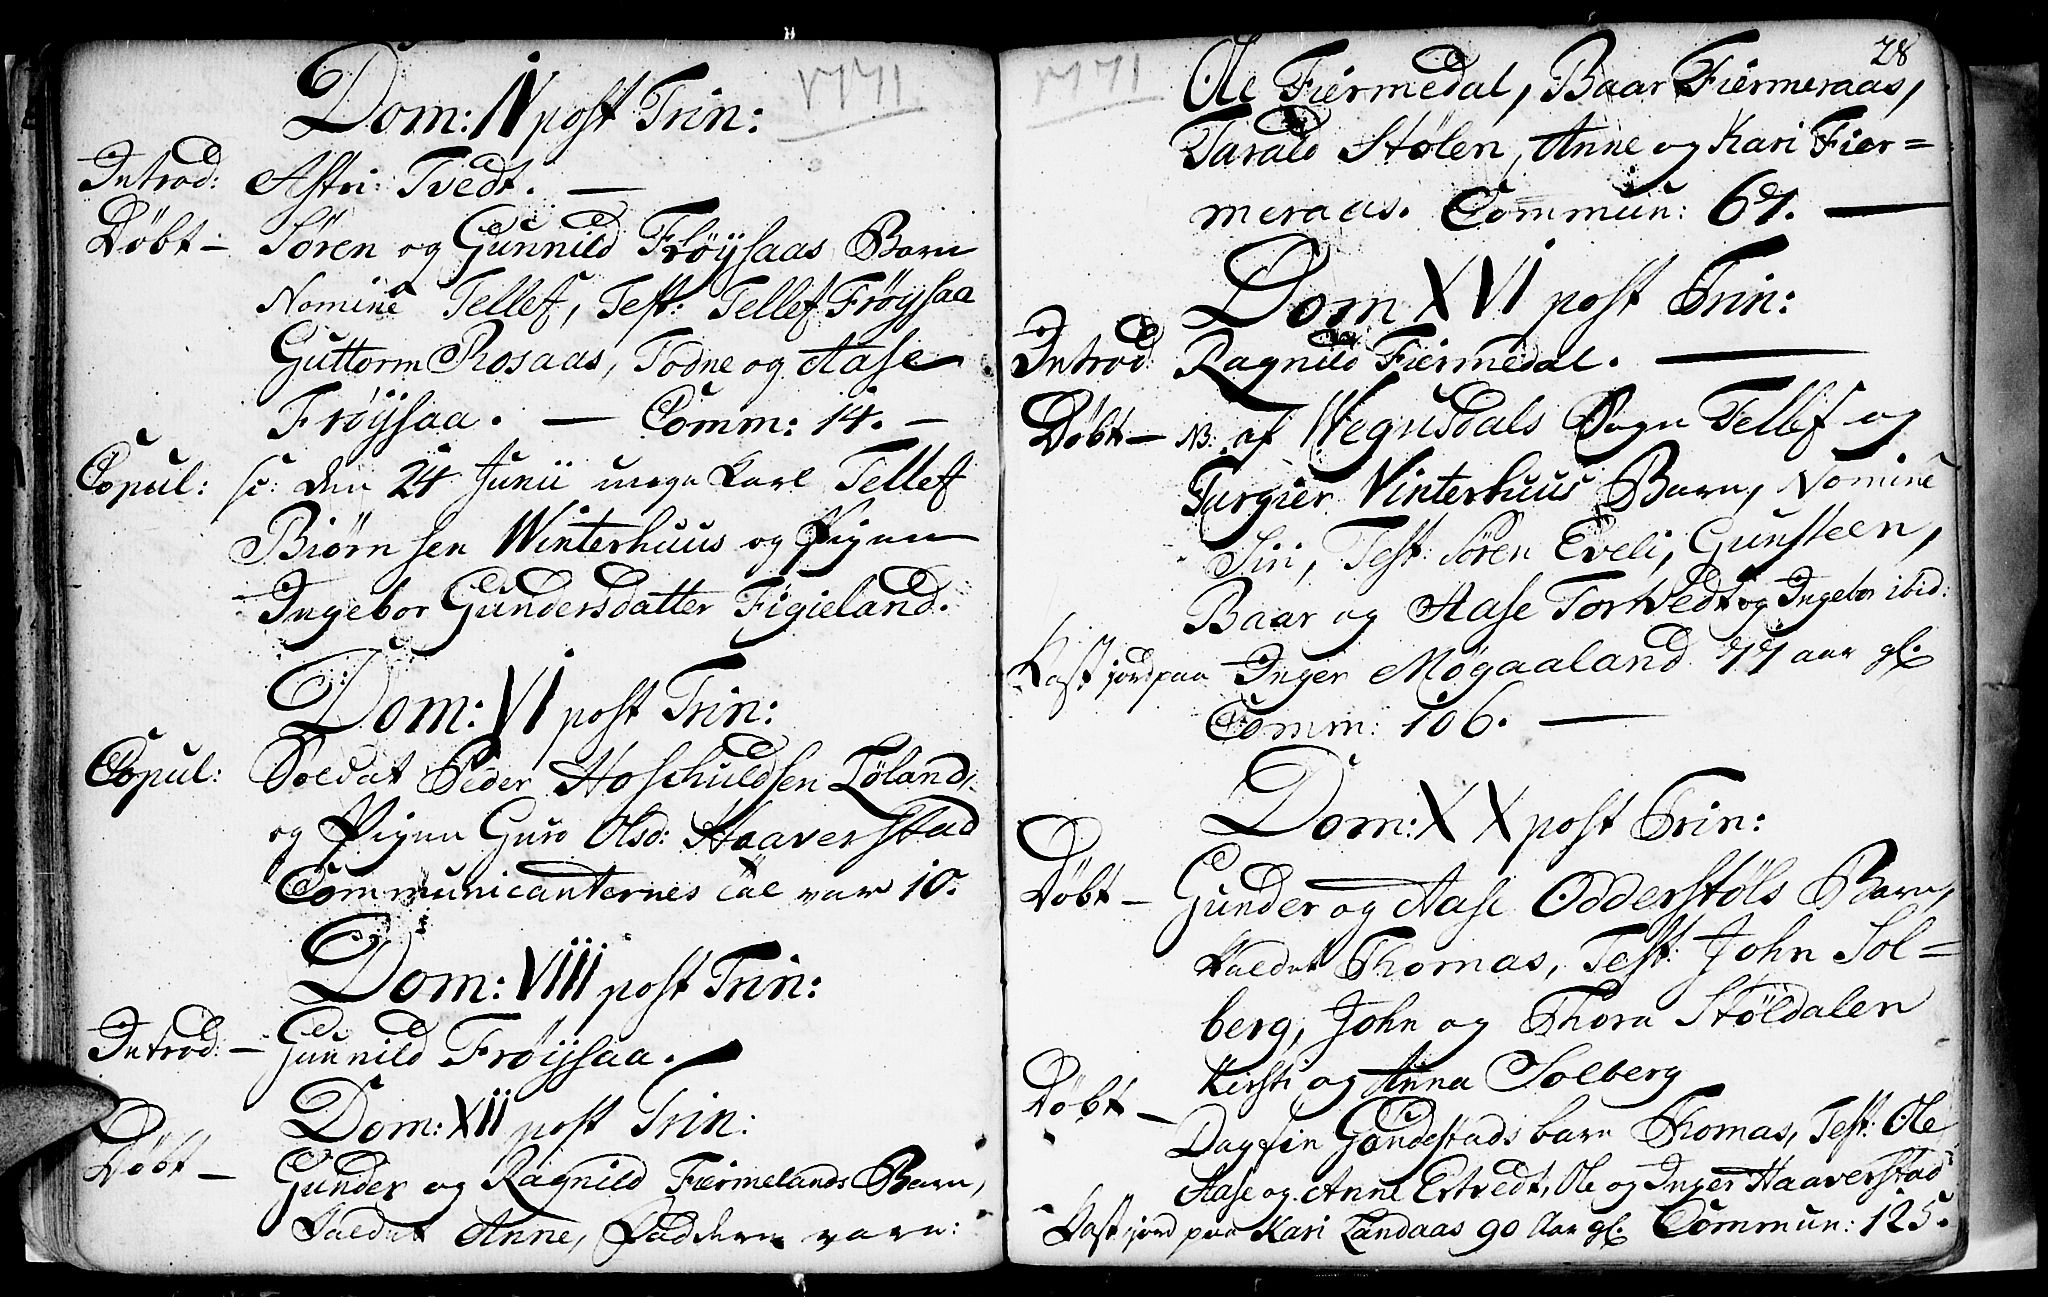 1771
Dom: IV post Trin:
Introd: Astri: Tvedt. —
Døbt — Søren og Gunnild Frøysaas Barn
Nomine Tellef, Test: Tellef Frøysaa
Guttorm Rosaas, Todne og Aase
Frøysaa. — Comm: 14. —
Copul: sc: den 24 Junii unge Karl Tellef
Biørnsen Winterhuus og Pigen
Ingebor Gundersdatter Figieland.
Dom: VI post Trin:
Copul: Soldat Peder Hoschuldsen Løland,
og Pigen Guro Olsd: Haaverstad
Communicanternes tal var 10.
Dom: VIIII post Trin:
Introd: — Gunnild Frøysaa.
Dom: XII post Trin:
Døbt — Gunder og Ragnild Fiermelands Barn,
kaldet Anne, Faddere vare:
1771
28
Ole Fiermedal, Baar Fiermeraas,
Tarald Stølen, Anne og Kari Fier=
meraas. Commun: 67. —
Dom XVI post Trin:
Introd: Ragnild Fiermedal. —
Døbt — NB. af Wegusdals Sogn Tellef og
Turgier Vinterhuus Barn, Nomine
Siri, Test: Søren Eveli, Gunsteen,
Baar og Aase Tortvedt og Ingebor ibid:
Kast jord paa Inger Møgaaland 77 aar gl.
Comm: 106. —
Dom: XX post Trin:
Døbt — Gunder og Aase Odderstøls Barn,
kaldet Thomas, Test: John Sol=
berg, John og Thora Støldalen
Kirsti og Anna Solberg
Døbt —
Dagfin Gaudestads barn Thomas, Test: Ole
Aase og Anne Ertvedt, Ole og Inger Haaverstad
Kast jord paa Kari Landaas 90 Aar gl. Commun: 125.